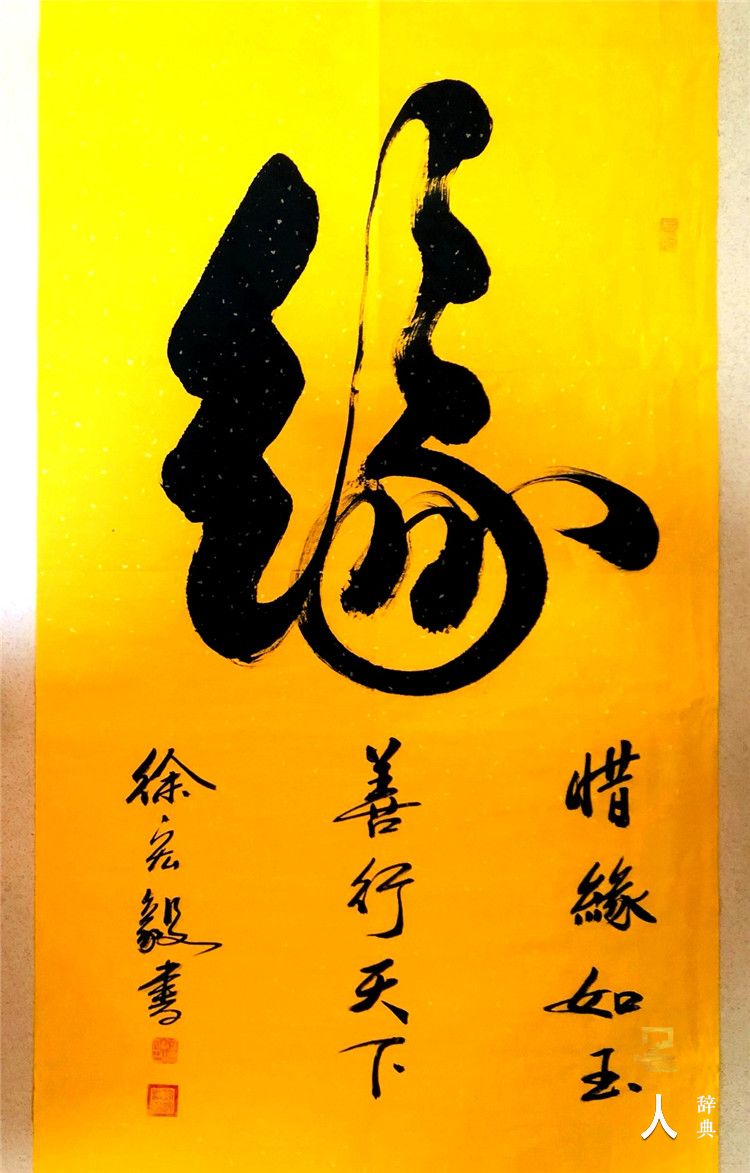 緣
惜緣如玉
善行天下
徐宏毅書
人 辞典